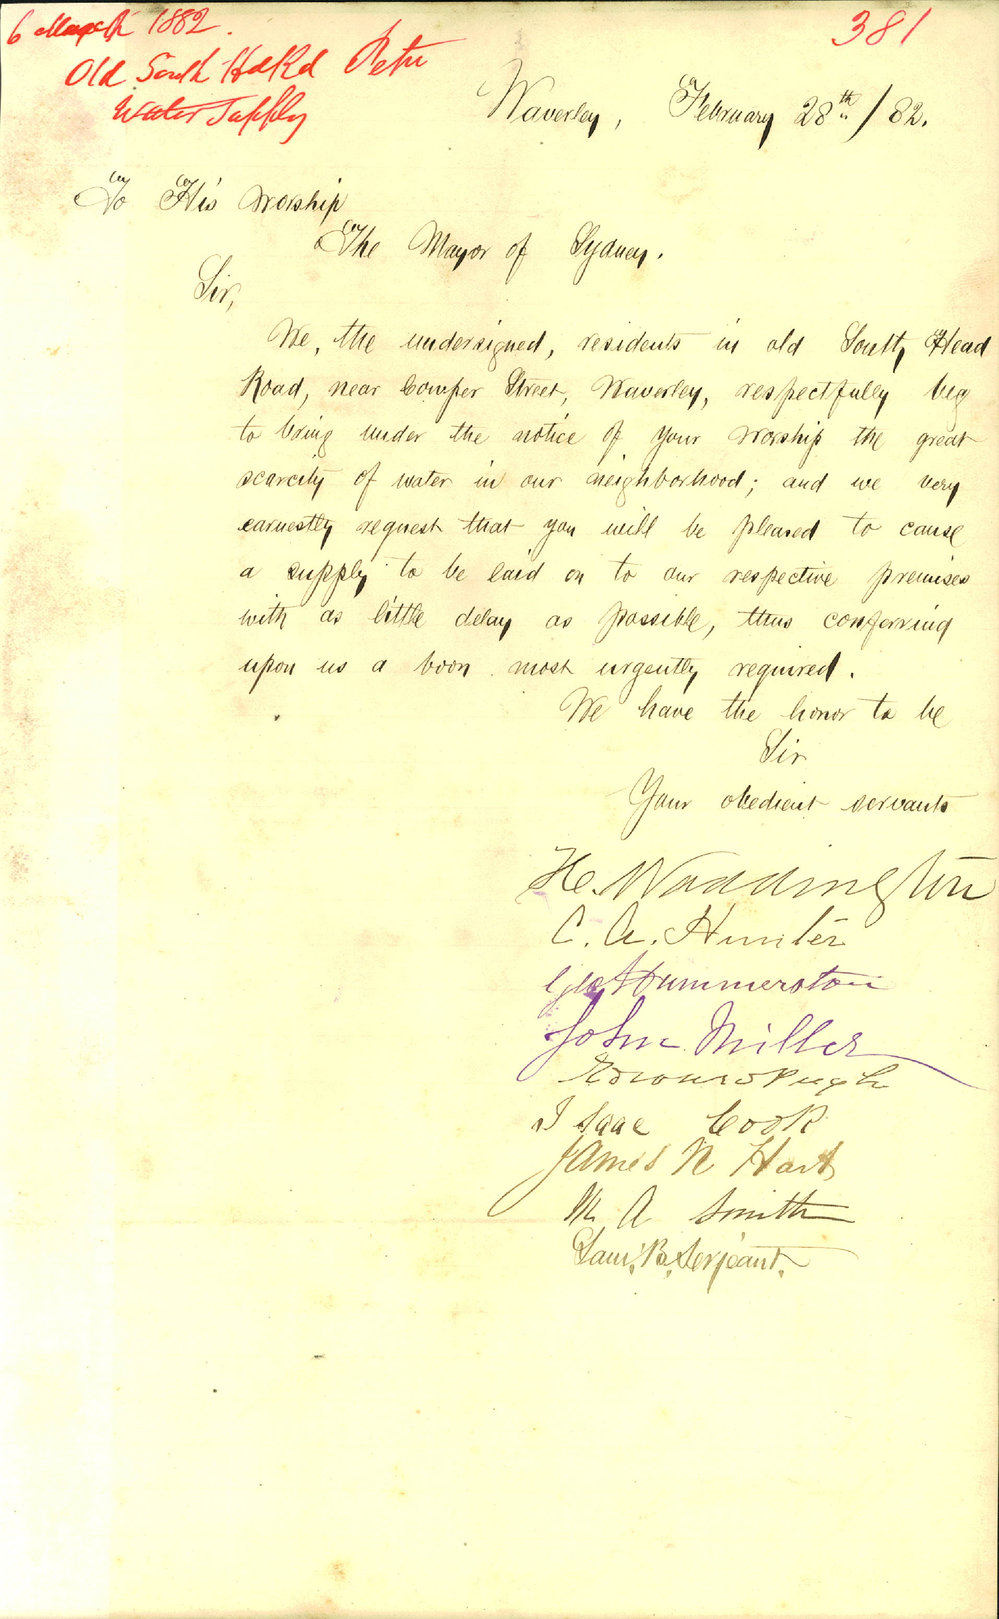 6 March 1882.
381
Old South Hd Rd Petn
Water Supply
Waverley, February 28th/82.
To His Worship
The Mayor of Sydney.
Sir,
We, the undersigned, residents in old South Head
Road, near Cowper Street, Waverley, respectfully beg
to bring under the notice of your Worship the great
scarcity of water in our neighborhood; and we very
earnestly request that you will be pleased to cause
a supply to be laid on to our respective premises
with as little delay as possible, thus conferring
upon us a boon most urgently required.
We have the honor to be
Sir
Your obedient servants
H. Waddington
C. A. Hunter
Geo Hummerston
John Miller
Edward Pugh
Isaac Cook
James N Hart
M A Smith
Saml. B. Serjeant.